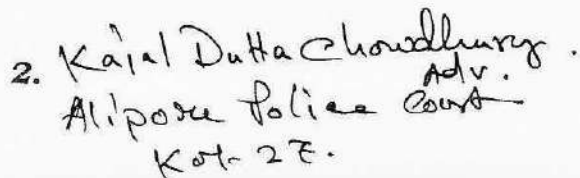 2. Kajal Dutta Chowdhury.
Adv.
Alipore Police Court
Kol- 27.